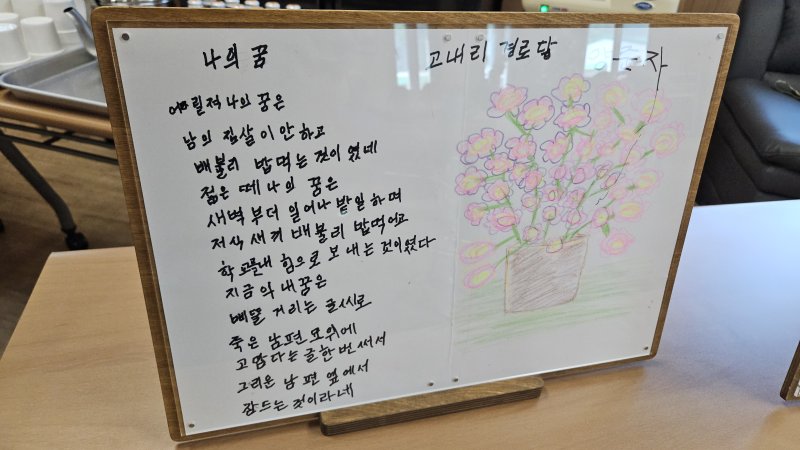 나의 꿈
고내리 경로당
릴적 나의 꿈은
남의 집살이 안하고
배불리 밥먹는 것이 였네
젊은 떼 나의 꿈은
새벽 부터 일어나 밭일 하며
저식 새끼 배불리 밥먹이고
학교를 내 힘으로 보내는 것이였다
지금의 내꿈은
삐뚤 거리는 글씨로
죽은 남편 묘위에
고맙다는 글한번 써서
그리운 남편 옆에서
잠드는 것이라네